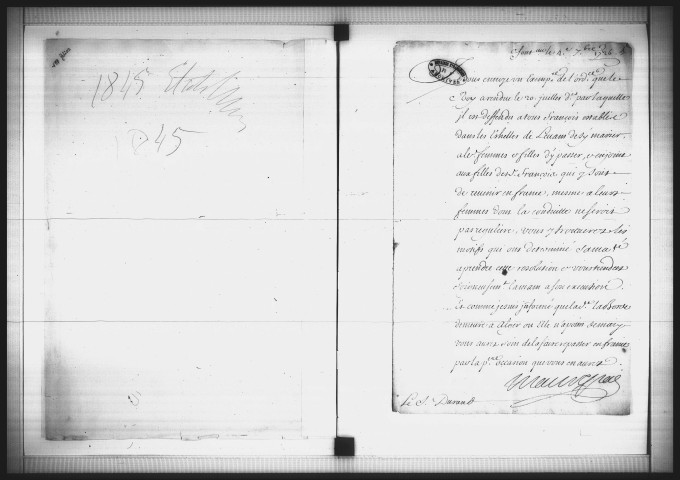 1845
1845
Je vous envoye un exemp.re de l'ord.ce que le
Roy a rendue le 20. juillet d.r par laquelle
il est deffendu a tous françois establis
dans les Echelles de Levant de s'y marier,
a le.s femmes & filles d'y passer, & enjoint
aux filles des françois qui y sont
de revenir en france, mesme a leurs
femmes dont la conduitte ne seroit
pas reguliere, vous y trouverez les
motifs qui ont determiné Sa Ma.té
a prendre cette resolution & vous tiendrez
la main a son execution.
Et comme je suis informé que la d.e
demeure a Alger ou Elle n'a point de mary
vous aurez soin de la faire repasser en france
par la p.re occasion que vous en aurez.
Maurepas
Le S.r Durand